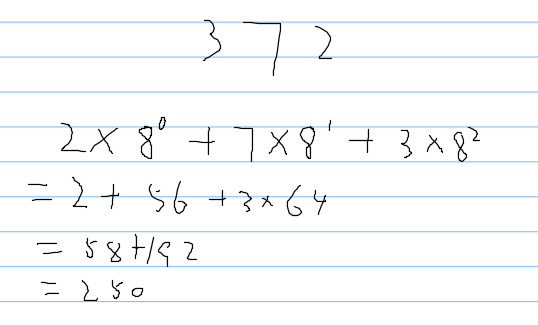 372
2 × 8⁰ + 7 × 8¹ + 3 × 8²
= 2 + 56 + 3 × 64
= 58 + 192
= 250